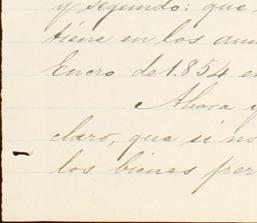 y segundo: que
tiene en los
Enero de 1.854 e
Ahora y
claro, que si no
los bienes per